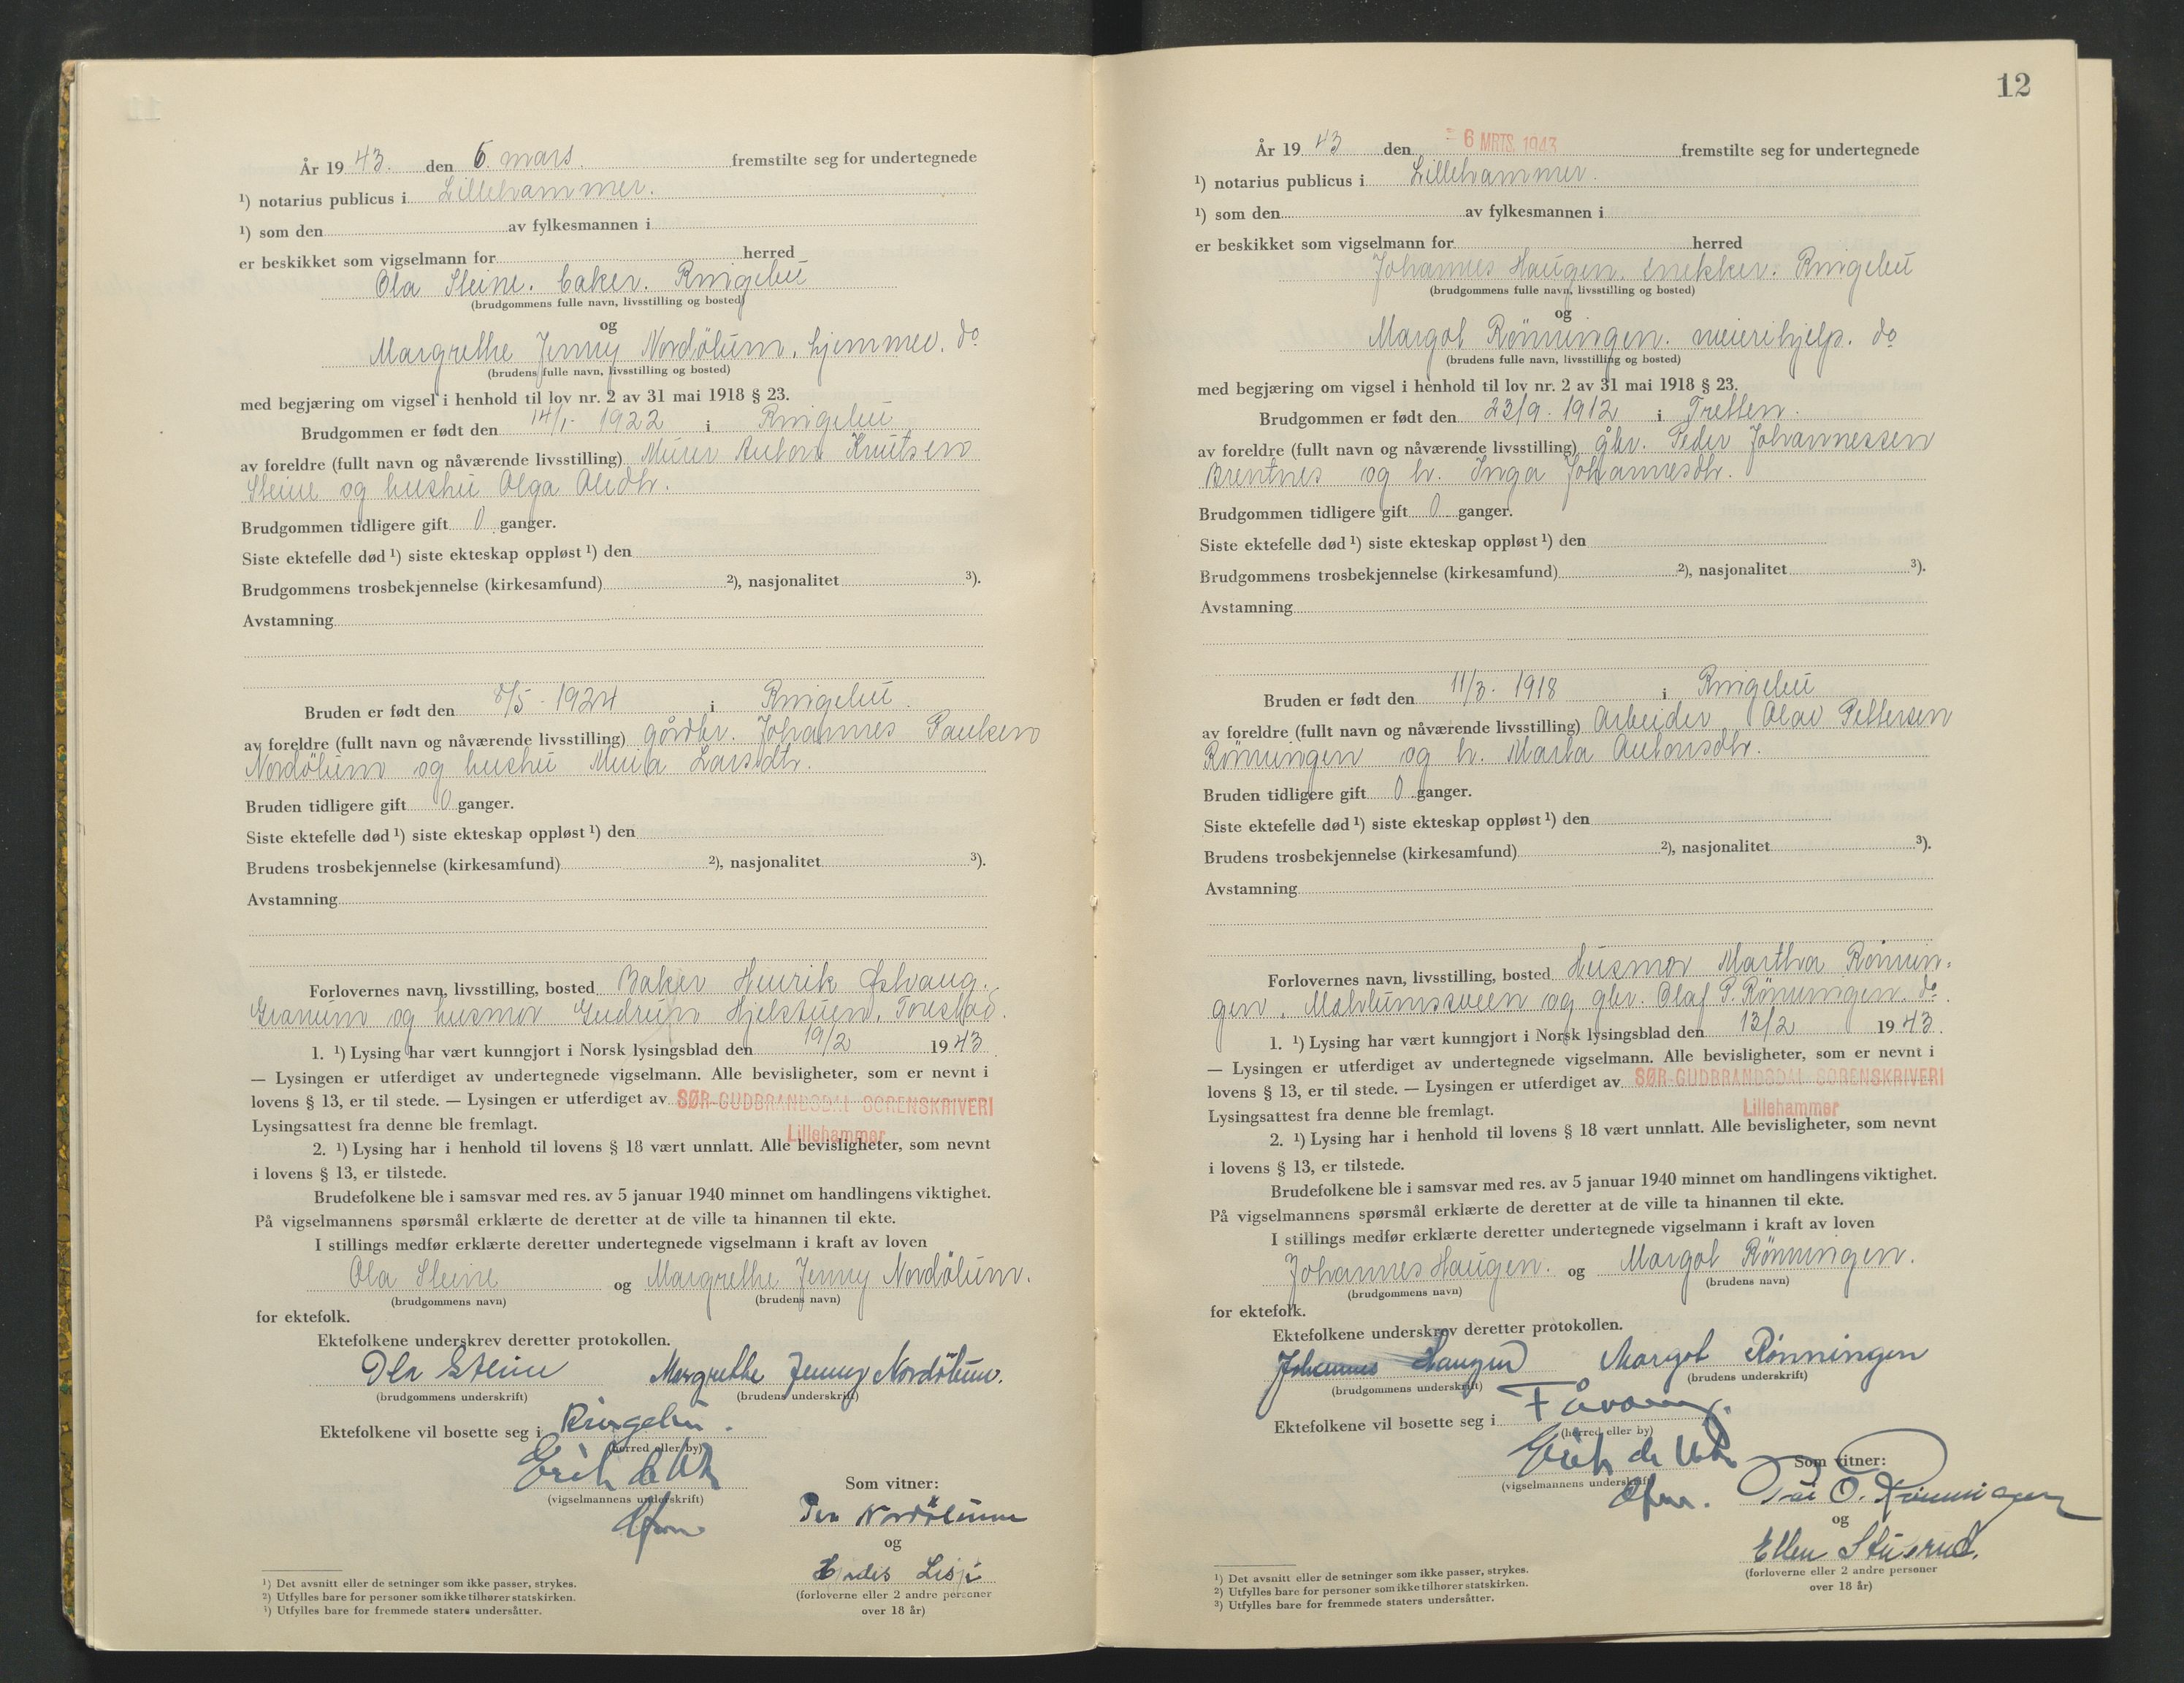 År 1943. den 6. mars. fremstilte seg for undertegnede
¹) notarius publicus i Lillehammer.
¹) som den av fylkesmannen i
er beskikket som vigselmann for herred
Ola Steine. baker. Ringebu
(brudgommens fulle navn, livsstilling og bosted)
og
Margrethe Jenny Nordölum, hjemmev. do
(brudens fulle navn, livsstilling og bosted)
med begjæring om vigsel i henhold til lov nr. 2 av 31 mai 1918 § 23.
Brudgommen er født den 14/1. 1922 i Ringebu
av foreldre (fullt navn og nåværende livsstilling) Murer Anton Knutsen
Steine og hustru Olga Oledtr.
Brudgommen tidligere gift 0 ganger.
Siste ektefelle død ¹) siste ekteskap oppløst ¹) den
Brudgommens trosbekjennelse (kirkesamfund) ²), nasjonalitet ³).
Avstamning
Bruden er født den 8/5 - 1924 i Ringebu.
av foreldre (fullt navn og nåværende livsstilling) gårdbr. Johannes Paulsen
Nordölum og hustru Larsdtr.
Bruden tidligere gift 0 ganger.
Siste ektefelle død ¹) siste ekteskap oppløst ¹) den
Brudens trosbekjennelse (kirkesamfund) ²), nasjonalitet ³).
Avstamning
Forlovernes navn, livsstilling, bosted Baker Henrik
Granum og husmor Gudrun Hjelstuen,
1. ¹) Lysing har vært kunngjort i Norsk lysingsblad den 19/2 1943.
— Lysingen er utferdiget av undertegnede vigselmann. Alle bevisligheter, som er nevnt i
lovens § 13, er til stede. — Lysingen er utferdiget av SØR-GUDBRANDSDAL SORENSKRIVERI
Lysingsattest fra denne ble fremlagt.
Lillehammer
2. ¹) Lysing har i henhold til lovens § 18 vært unnlatt. Alle bevisligheter, som nevnt
i lovens § 13, er tilstede.
Brudefolkene ble i samsvar med res. av 5 januar 1940 minnet om handlingens viktighet.
På vigselmannens spørsmål erklærte de deretter at de ville ta hinannen til ekte.
I stillings medfør erklærte deretter undertegnede vigselmann i kraft av loven
Ola Steine og Margrethe Jenny Nordölum.
(brudgommens navn) (brudens navn)
for ektefolk.
Ektefolkene underskrev deretter protokollen.
Ola Steine Margrethe Jenny Nordölum.
(brudgommens underskrift) (brudens underskrift)
Ektefolkene vil bosette seg i Ringebu.
(herred eller by)
(vigselmannens underskrift)
Som vitner:
Per Nordölum
og
(forloverne eller 2 andre personer
over 18 år)
¹) Det avsnitt eller de setninger som ikke passer, strykes.
²) Utfylles bare for personer som ikke tilhører statskirken.
³) Utfylles bare for fremmede staters undersåtter.
12
År 1943 den - 6 MRTS. 1943 fremstilte seg for undertegnede
¹) notarius publicus i Lillehammer.
¹) som den av fylkesmannen i
er beskikket som vigselmann for herred
Johannes Haugen. snekker. Ringebu
(brudgommens fulle navn, livsstilling og bosted)
og
Margot Rönningen. meierihjelp. do
(brudens fulle navn, livsstilling og bosted)
med begjæring om vigsel i henhold til lov nr. 2 av 31 mai 1918 § 23.
Brudgommen er født den 23/9. 1912 i Tretten.
av foreldre (fullt navn og nåværende livsstilling) gbr. Peder Johannessen
Brentnes og h. Inga Johannesdtr.
Brudgommen tidligere gift 0 ganger.
Siste ektefelle død ¹) siste ekteskap oppløst ¹) den
Brudgommens trosbekjennelse (kirkesamfund) ²), nasjonalitet ³).
Avstamning
Bruden er født den 11/3. 1918 i Ringebu
av foreldre (fullt navn og nåværende livsstilling) Arbeider Olav Pettersen
Rönningen og h. Marta Antonsdtr.
Bruden tidligere gift 0 ganger.
Siste ektefelle død ¹) siste ekteskap oppløst ¹) den
Brudens trosbekjennelse (kirkesamfund) ²), nasjonalitet ³).
Avstamning
Forlovernes navn, livsstilling, bosted Husmor Martha Rönnin-
gen, og gbr. Olaf P. Rönningen. do.
1. ¹) Lysing har vært kunngjort i Norsk lysingsblad den 13/2 1943.
— Lysingen er utferdiget av undertegnede vigselmann. Alle bevisligheter, som er nevnt i
lovens § 13, er til stede. — Lysingen er utferdiget av SØR-GUDBRANDSDAL SORENSKRIVERI
Lysingsattest fra denne ble fremlagt.
Lillehammer
2. ¹) Lysing har i henhold til lovens § 18 vært unnlatt. Alle bevisligheter, som nevnt
i lovens § 13, er tilstede.
Brudefolkene ble i samsvar med res. av 5 januar 1940 minnet om handlingens viktighet.
På vigselmannens spørsmål erklærte de deretter at de ville ta hinannen til ekte.
I stillings medfør erklærte deretter undertegnede vigselmann i kraft av loven
Johannes Haugen. og Margot Rönningen.
(brudgommens navn) (brudens navn)
for ektefolk.
Ektefolkene underskrev deretter protokollen.
Johannes Haugen Margot Rønningen
(brudgommens underskrift) (brudens underskrift)
Ektefolkene vil bosette seg i Fåvang.
(herred eller by)
(vigselmannens underskrift)
Som vitner:
O. Rönningen
og
Ellen Stuerud.
(forloverne eller 2 andre personer
over 18 år)
¹) Det avsnitt eller de setninger som ikke passer, strykes.
²) Utfylles bare for personer som ikke tilhører statskirken.
³) Utfylles bare for fremmede staters undersåtter.